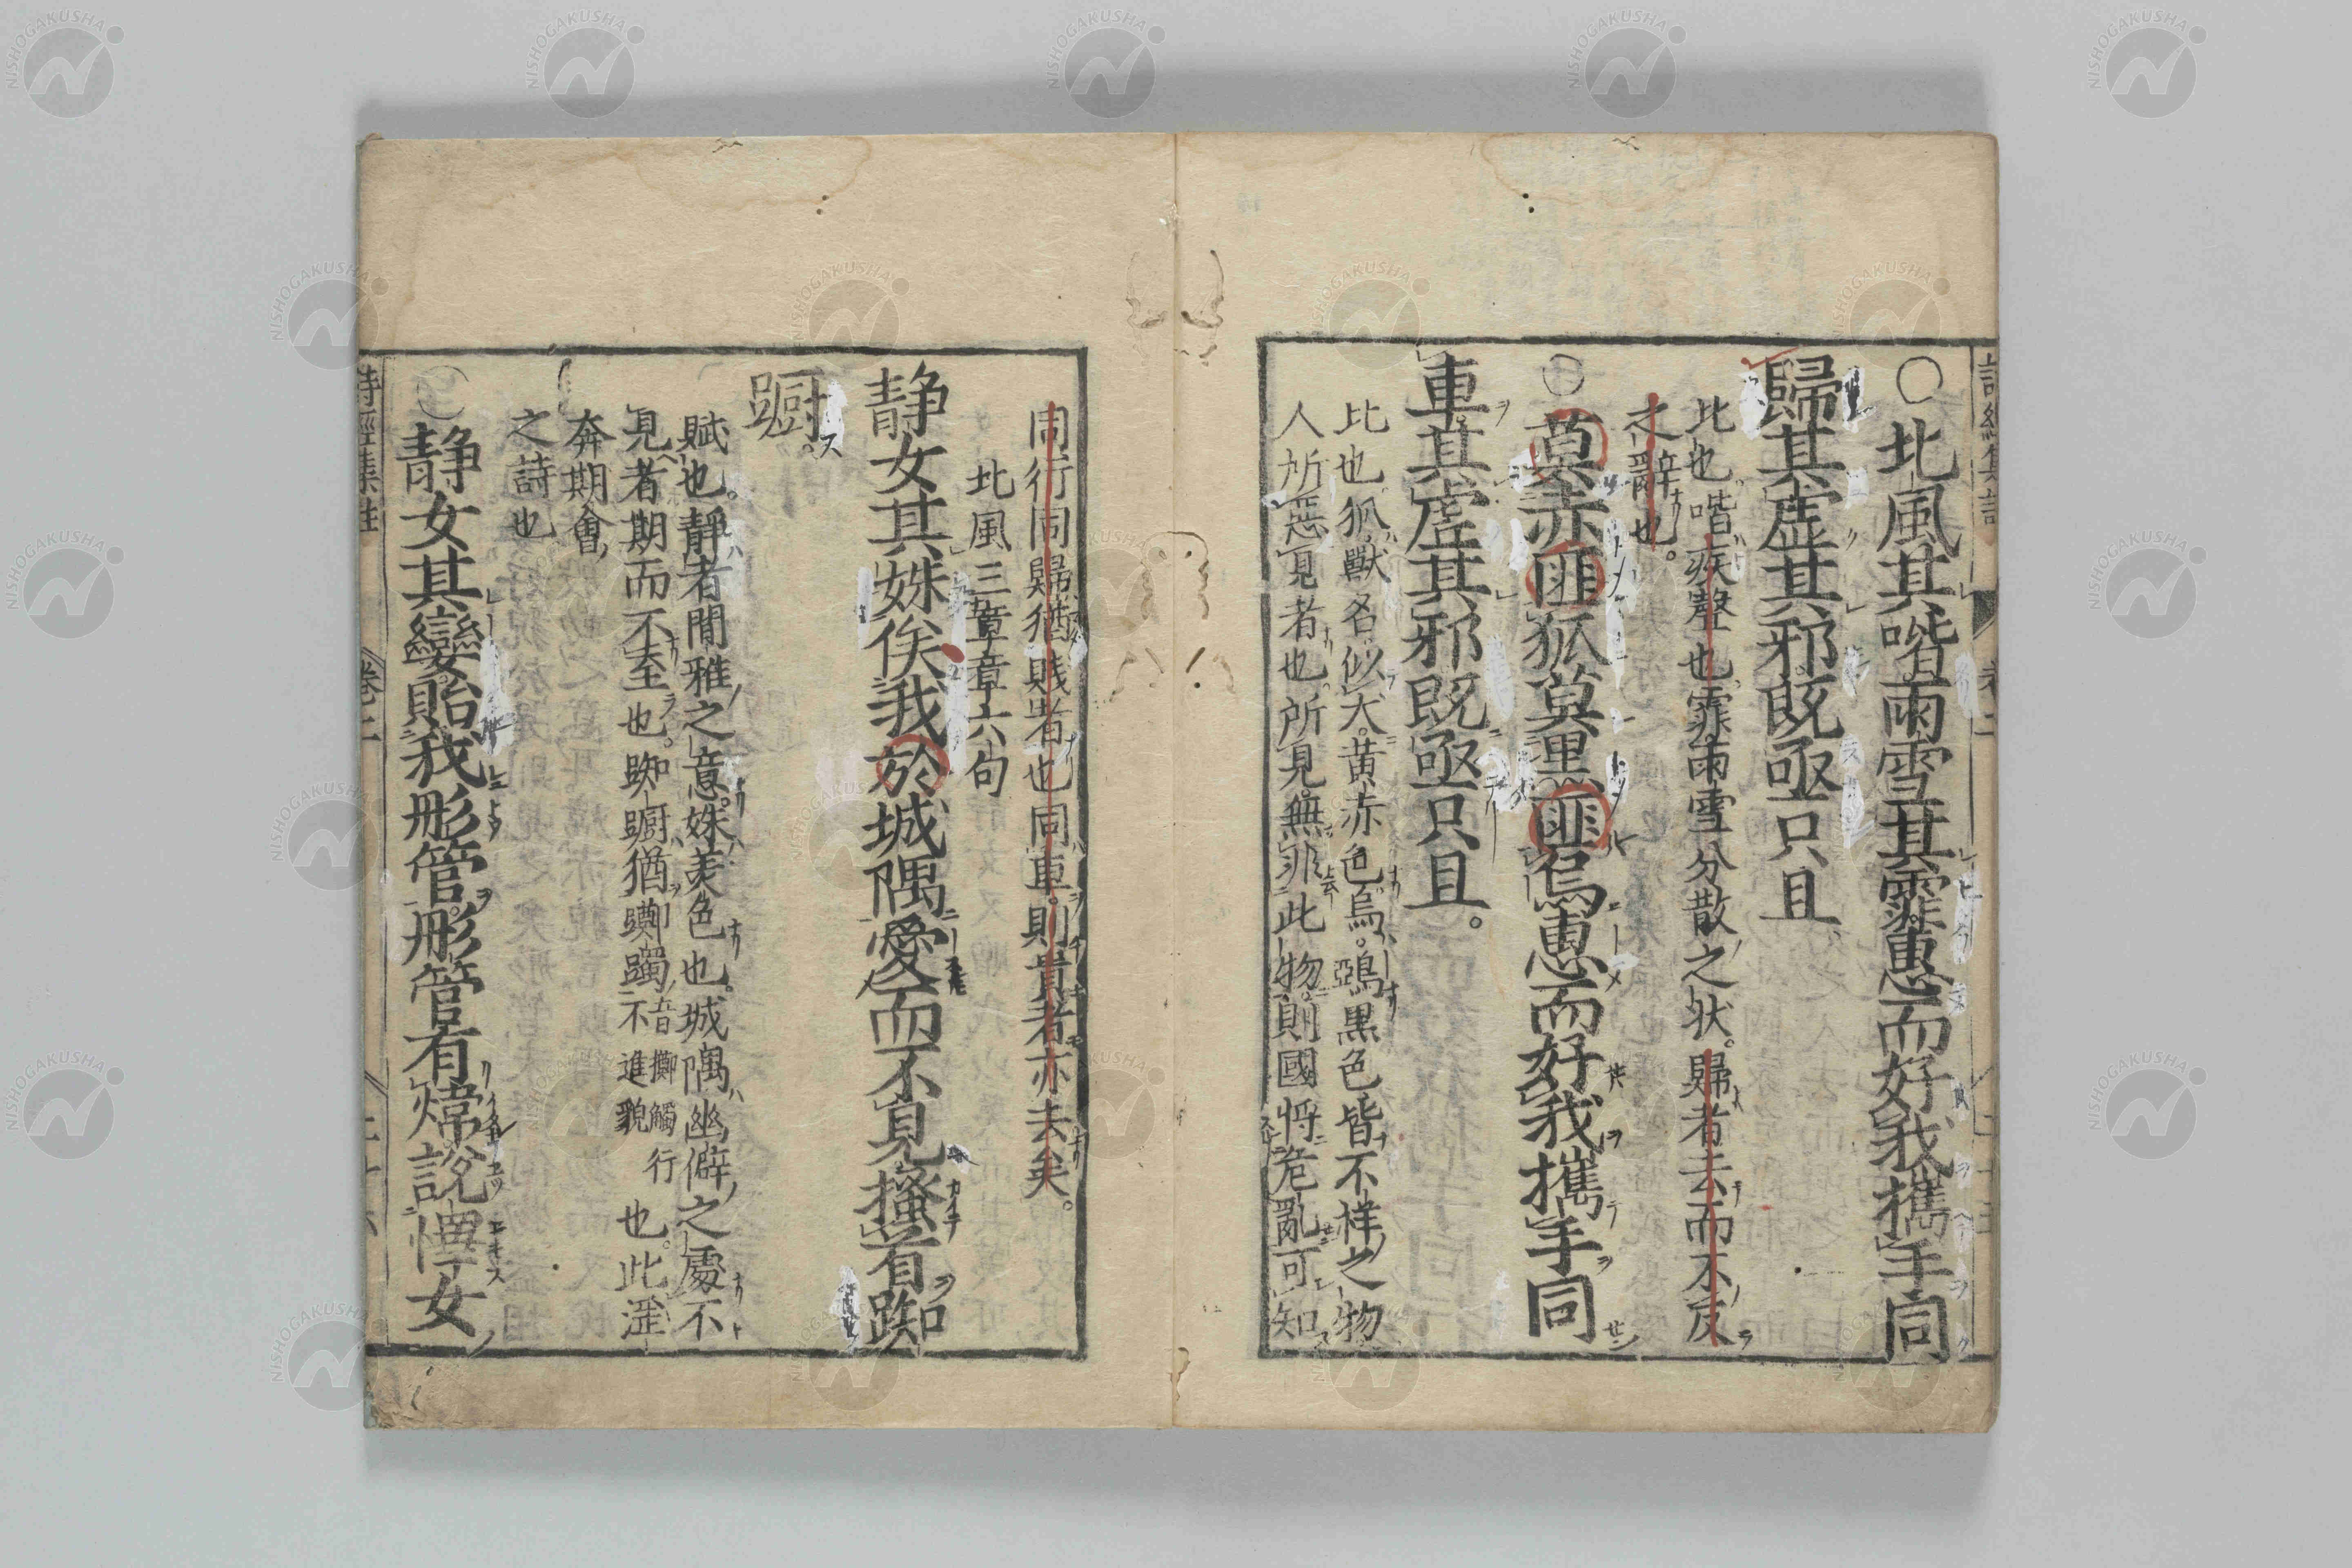 ○北風其喈雨雪其霏惠而好我攜手同
歸其虛其邪既亟只且
比也喈疾聲也霏雨雪分散之状歸者去而不反
之辭也。
○莫赤匪狐莫黒匪烏惠而好我攜手同
車其虛其邪既亟只且。
比也狐獸名似犬黄赤色烏。鵶黒色皆不祥之物
人所惡見者也所見無非此物則國將危亂可知
同行同歸猶賤者也同車則貴者亦去矣。
北風三章章六句
静女其姝俟我於城隅愛而不見搔首踟
躕。
賦也。靜者閒雅之意姝美色也。城隅幽僻之處不
見者期而不至也。踟躕猶躑躅音擲觸行不進貌也。此淫
奔期會
之詩也
○静女其孌貽我彤管彤管有煒說懌女
詩經集註
卷二
NISHOGAKUSHA